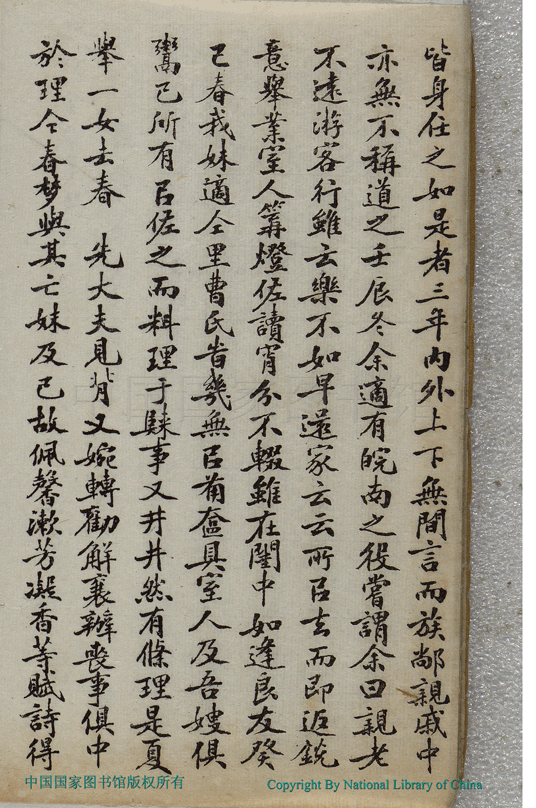 皆身任之如是者三年內外上下無間言而族鄰親戚中
亦無不稱道之壬辰冬余適有皖南之役嘗謂余曰親老
不遠游客行雖云樂不如早還家云云所㠯去而即返銳
意舉業室人篝燈佐讀宵分不輟雖在閨中如逢良友癸
巳春我妹適仝里曹氏昔幾無㠯備奩具室人及吾嫂俱
鬻己所有㠯佐之而料理于歸事又井井然有條理是夏
舉一女去春 先大夫見背又婉轉勸解襄辦喪事俱中
於理今春梦與其亡妹及已故佩馨漱芳凝香等賦詩得
中国国家图书馆版权所有
Copyright By National Library of China